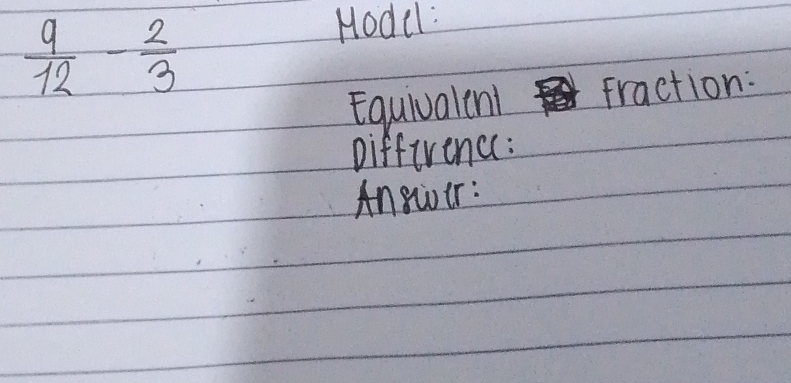 9/12 - 2/3
Model:
Equivalent Fraction:
Difference:
Answer: